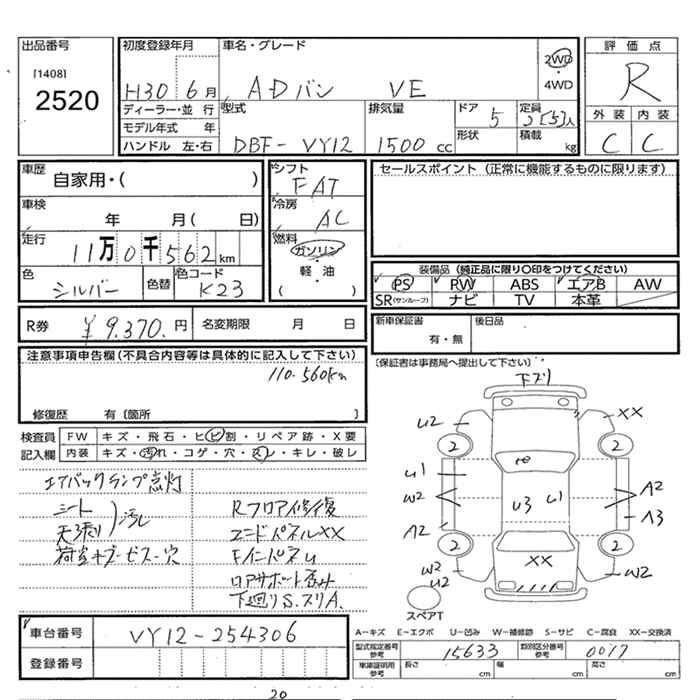 出品番号
[1408]
2520
初度登録年月
H30 6月
車名・グレード
ADバン VE
2WD
・
4WD
評価点
R
外装 内装
C C
ディーラー・並 行
モデル年式 年
ハンドル 左・右
型式
DBF-VY12
排気量
1500 cc
ドア
5
形状
定員
2[5]人
積載
kg
車歴
自家用・( )
車検
年 月( 日)
走行
11万0千562km
色
シルバー
色替
色コード
K23
シフト
FAT
冷房
AC
燃料
ガソリン
・
軽・油
( )
セールスポイント (正常に機能するものに限ります)
装備品 (純正品に限り○印をつけてください)
PS PW ABS エアB AW
SR(サンルーフ) ナビ TV 本革
R券 ¥9,370.円
名変期限 月 日
新車保証書
有・無
後日品
[保証書は事務局へ提出して下さい]
注意事項申告欄(不具合内容等は具体的に記入して下さい)
110,560km
修復歴 有〔箇所 〕
検査員
記入欄
FW キズ・飛石・ヒビ割・リペア跡・X要
内装 キズ・汚れ・コゲ・穴・スレ・キレ・破レ
エアバックランプ点灯
シート
天張り
汚レ
荷室+ダッシュ穴
Rフロア修復
エンドパネルXX
FインパネU
コアサポート歪み
下廻りS.スリA.
下ズリ
U2
XX
2
2
U1
W2
A2
U3
U1
A2
A3
2
2
XX
W2
U2
W2
スペアT
車台番号
VY12-254306
登録番号
A-キズ E-エクボ U-凹み W-補修跡 S-サビ C-腐食 XX-交換済
型式指定番号
参考
15633
類別区分番号
参考
0017
車庫証明用
参考
長さ cm
幅 cm
高さ cm
20